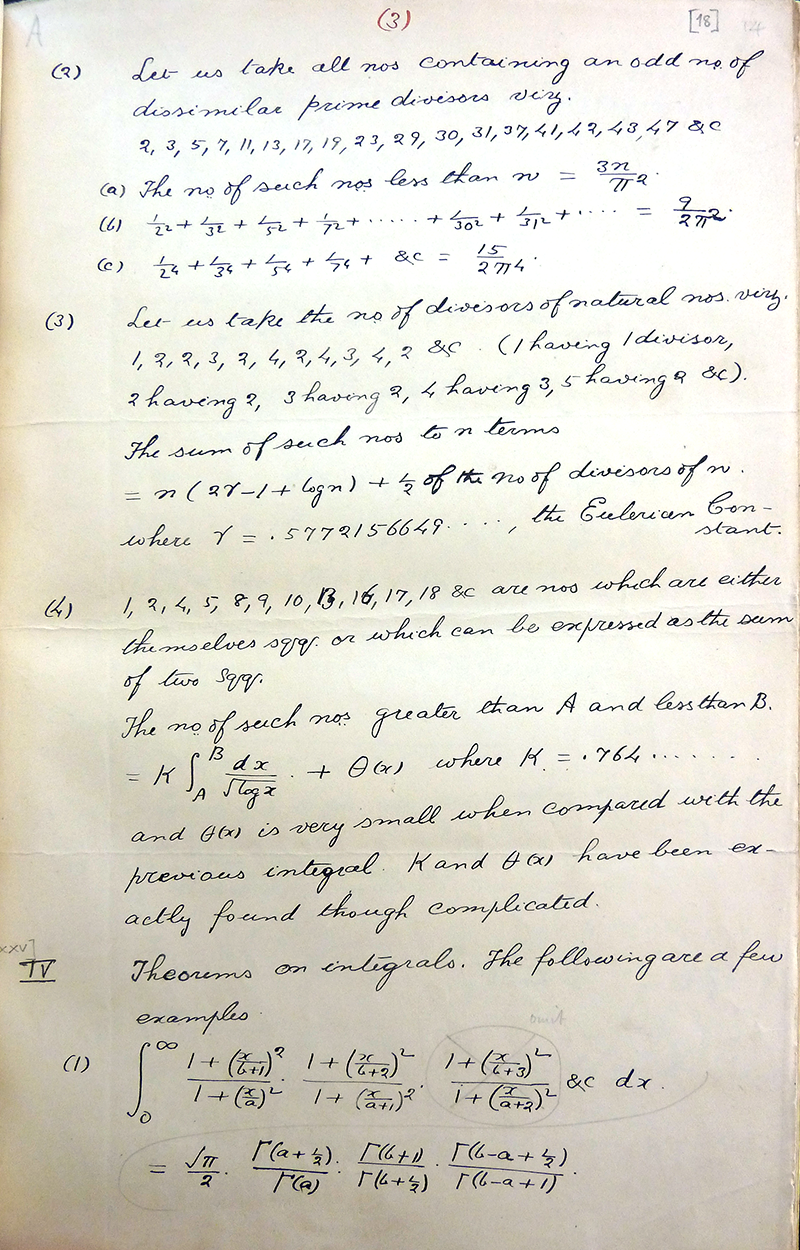 A (3) [18]
(2) Let us take all nos containing an odd no. of
dissimilar prime divisors viz.
2, 3, 5, 7, 11, 13, 17, 19, 23, 29, 30, 31, 37, 41, 42, 43, 47 &c
(a) The no. of such nos less than n = 3n/π².
(b) 1/2² + 1/3² + 1/5² + 1/7² + ..... + 1/30² + 1/31² + .... = 9/2π².
(c) 1/2⁴ + 1/3⁴ + 1/5⁴ + 1/7⁴ + &c = 15/2π⁴.
(3) Let us take the no. of divisors of natural nos. viz.
1, 2, 2, 3, 2, 4, 2, 4, 3, 4, 2 &c. (1 having 1 divisor,
2 having 2, 3 having 2, 4 having 3, 5 having 2 &c).
The sum of such nos to n terms
= n (2γ-1 + log n) + 1/2 of the no of divisors of n.
where γ = .5772156649....., the Eulerian Con-
stant.
(4) 1, 2, 4, 5, 8, 9, 10, 13, 16, 17, 18 &c are nos which are either
themselves sqq. or which can be expressed as the sum
of two sqq.
The no. of such nos greater than A and less than B.
= K ∫_A^B dx/√log x. + θ(x) where K = .764.......
and θ(x) is very small when compared with the
previous integral. K and θ(x) have been ex-
actly found though complicated.
XXV]
IV Theorems on integrals. The following are a few
examples
omit
(1) ∫_0^∞ (1 + (x/b+1)²)/(1 + (x/a)²) . (1 + (x/b+2)²)/(1 + (x/a+1)²) . (1 + (x/b+3)²)/(1 + (x/a+2)²) &c dx.
= √π/2 . Γ(a + 1/2)/Γ(a) . Γ(b+1)/Γ(b+1/2) . Γ(b-a+1/2)/Γ(b-a+1).